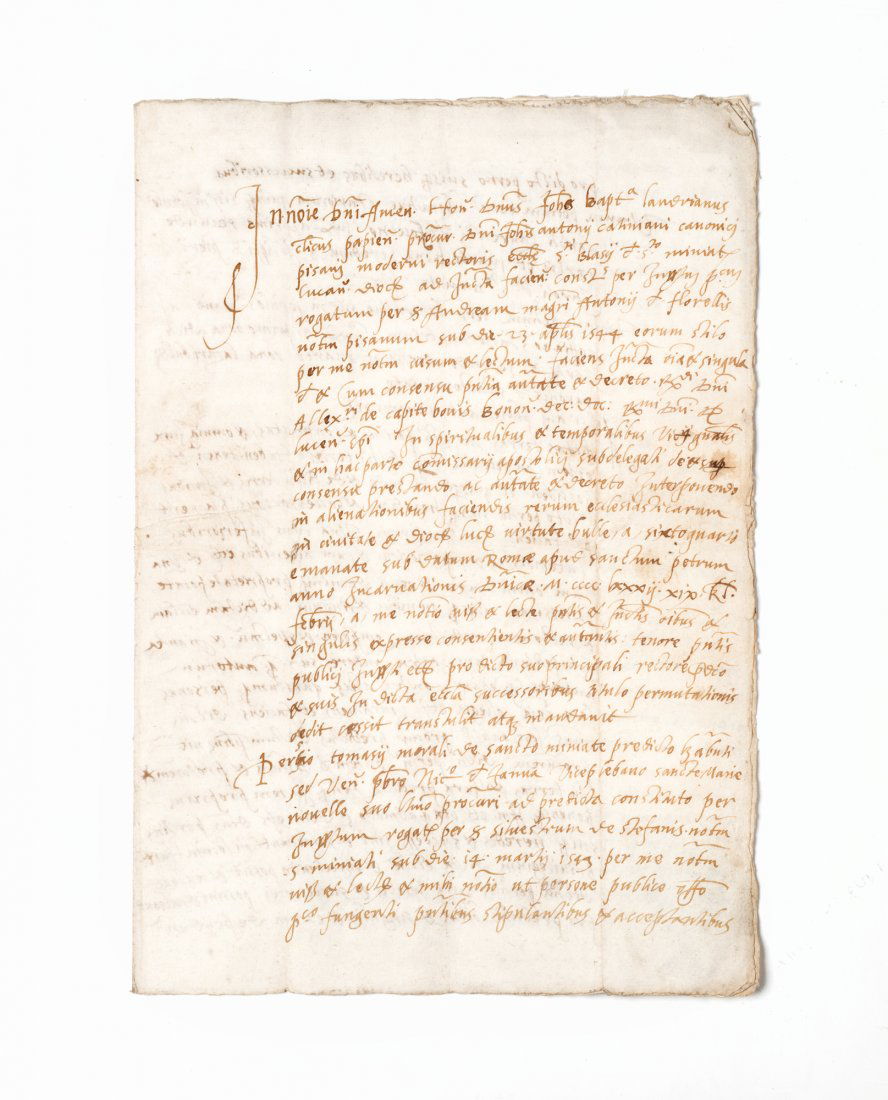 In noie Dni Amen. Hon. Dnus Johes Bapta Landrianus
clicus papien. procur. Dni Johis antonii catiniani canonici
pisani moderni rectoris eccle Sti Blasij d. Sto miniate
lucan. dioc ad Jncta facien. const. per
rogatum per S Andream magri Antonij d. florellis
notm pisanum sub die 23 aplis 1544 eorum stilo
per me notm visum & lectum. faciens Jncta oia & singula
& cum consensu pntia auttate & decreto Rdi Dni
Allexri de capite bovis Bonon. dec. doc. Rmi Dni
lucen. epi In spiritualibus & temporalibus
& in hac parte commissarij apostolici subdelegati de
consensu prestando ac auttate & decreto Interponendo
in alienationibus faciendis rerum ecclesiasticarum
in civitate & dioc luc virtute bulle a sixto quarto
emanate sub datum Rome apud sanctum petrum
anno Incarnationis Dnice M cccc lxxxij xix kl.
febrij a me notio & lecte pntis & oibus &
singulis expresse consentientis & auttantis tenore pntis
publici pro dicto suo principali rectore pdco
& suis In dicta eccla successoribus titulo permutationis
dedit cessit transtulit atq mandavit
Persio tomasij morali de sancto miniate predicto
sed Ven. pbro Nico d. Janua Viceplebano sancte Marie
novelle suo ltimo procuri ad predicta constituto per
rogat per S silvestrum de stefanis notm
S. miniati sub die 14 martij 1543 per me notm
& lect & mihi notio ut persone publice offo
pco fungenti stipulantibus & acceptantibus